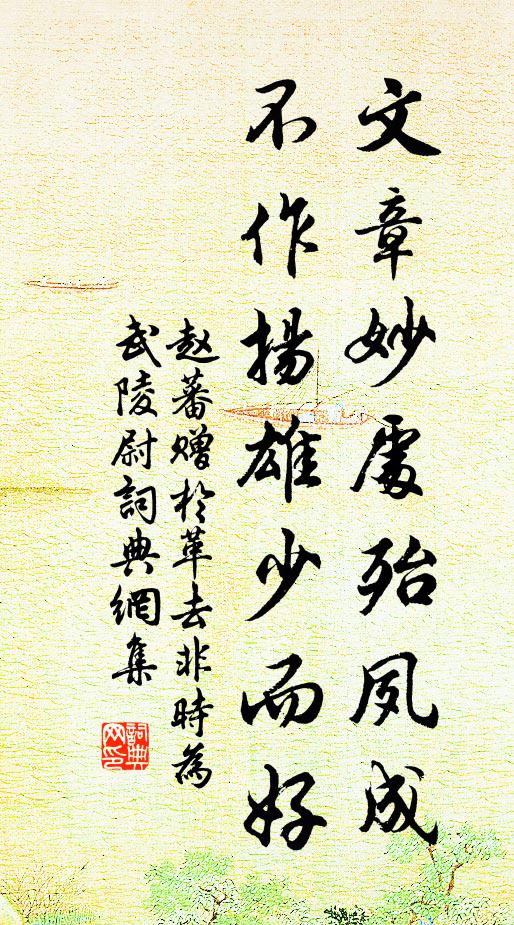 文章妙處殆夙成
不作揚雄少而好
赵蕃赠於革去非時為
武陵尉詞典網集
詞典网印